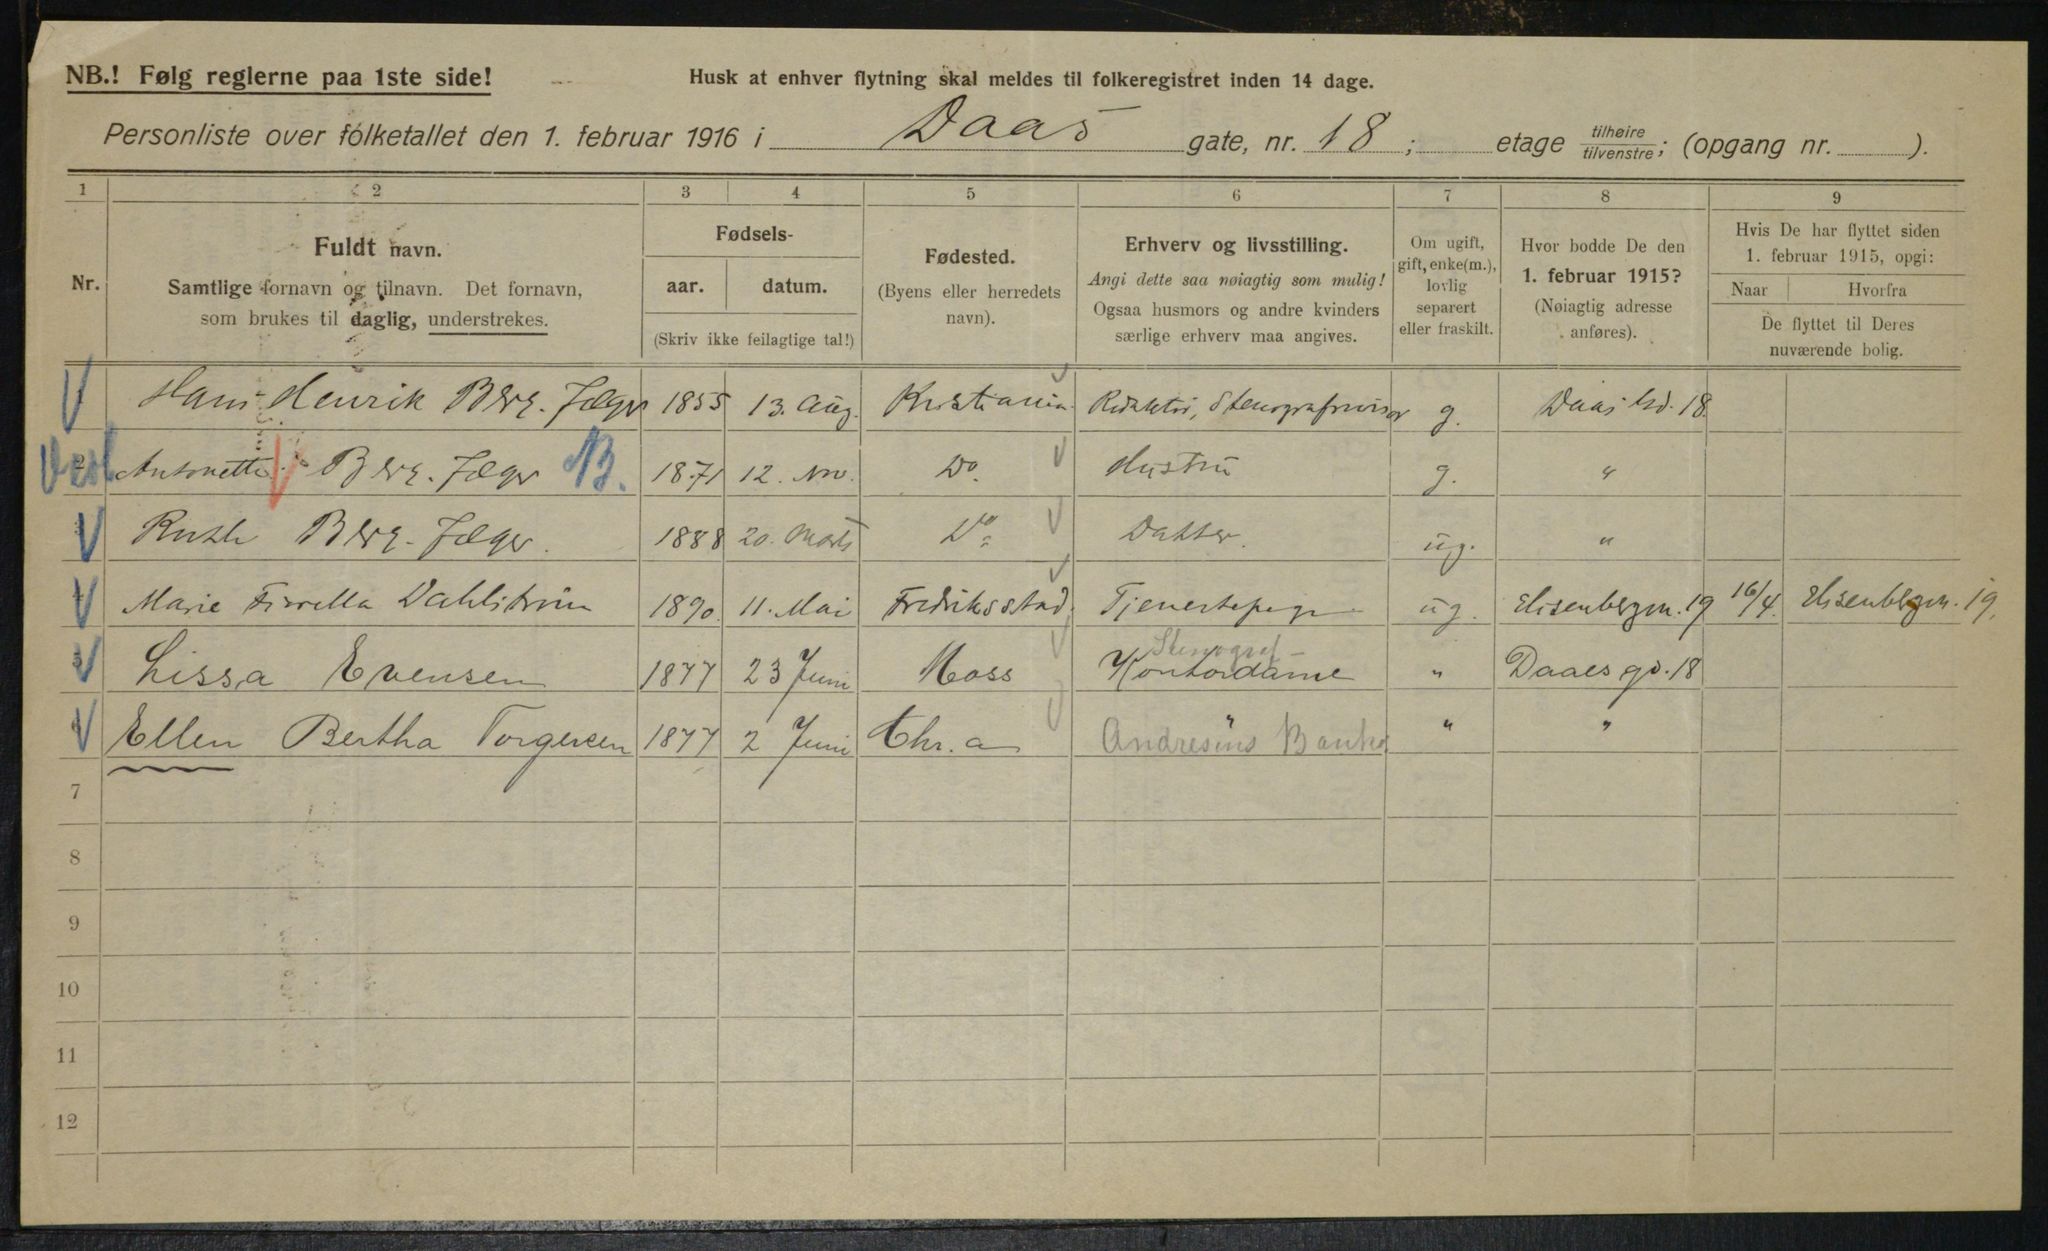 NB.! Følg reglerne paa 1ste side! Husk at enhver flytning skal meldes til folkeregistret inden 14 dage.
Personliste over folketallet den 1. februar 1916 i Daas gate, nr. 18; etage tilhøire/tilvenstre; (opgang nr. ).
1 2 3 4 5 6 7 8 9
Nr.
Fuldt navn.
Samtlige fornavn og tilnavn. Det fornavn,
som brukes til daglig, understrekes.
Fødsels-
aar. datum.
(Skriv ikke feilagtige tal!)
Fødested.
(Byens eller herredets
navn).
Erhverv og livsstilling.
Angi dette saa nøiagtig som mulig!
Ogsaa husmors og andre kvinders
særlige erhverv maa angives.
Om ugift,
gift, enke(m.),
lovlig
separert
eller fraskilt.
Hvor bodde De den
1. februar 1915?
(Nøiagtig adresse
anføres).
Hvis De har flyttet siden
1. februar 1915, opgi:
Naar Hvorfra
De flyttet til Deres
nuværende bolig.
Hans Henrik Berg-Jæger 1855 13. Aug. Kristiania Redaktør, g. Daas gd. 18.
Antonette Berg-Jæger B. 1871 12. Nov. Do. Hustru g. "
Ruth Berg-Jæger. 1888 20. Marts Do Datter. ug. "
Marie Dahlstrøm 1890. 11. Mai Fredriksstad. Tjenestepige ug. Elisenbergvn. 19 16/4. Elisenbergvn. 19.
Stenograf
Lissa Evensen 1877 23 Juni Moss Kontordame " Daaes gd. 18
Ellen Bertha Torgersen 1877 2 Juni Chr.a " " "
Andresens Bank
7
8
9
10
11
12